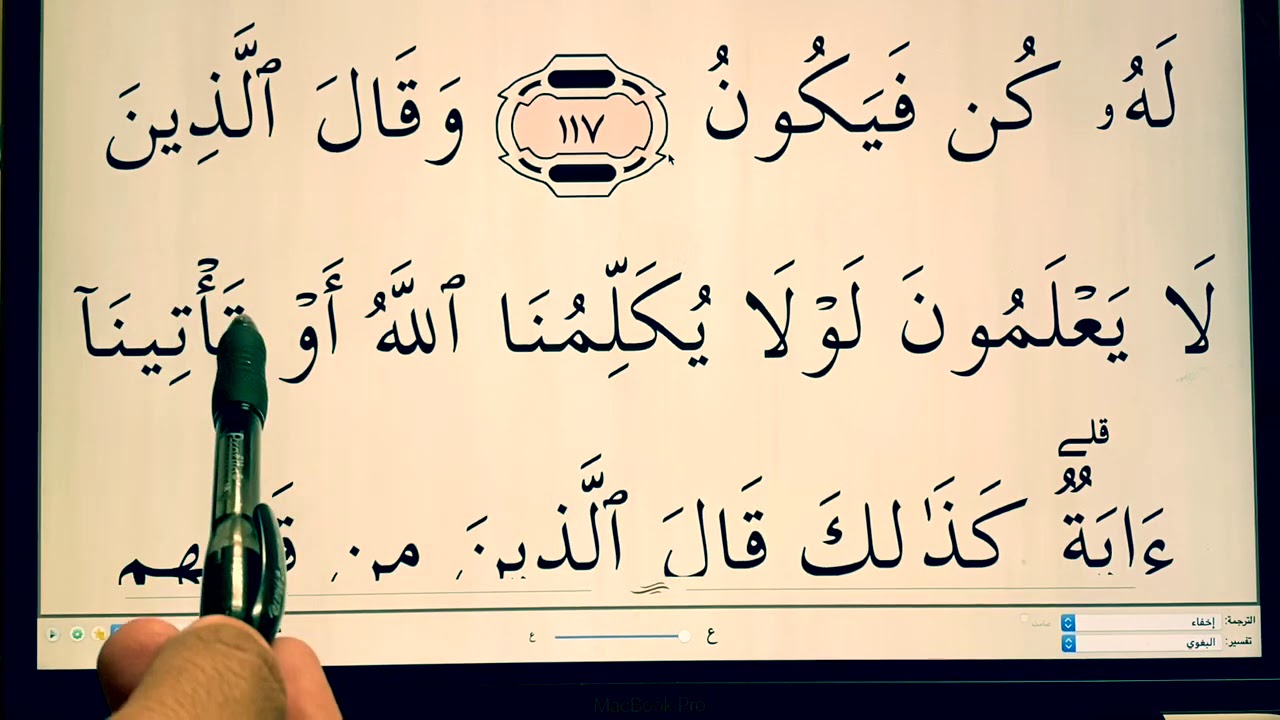 لَهُۥ كُن فَيَكُونُ ١١٧ وَقَالَ ٱلَّذِينَ
لَا يَعْلَمُونَ لَوْلَا يُكَلِّمُنَا ٱللَّهُ أَوْ تَأْتِينَآ
ءَايَةٌ ۗ كَذَٰلِكَ قَالَ ٱلَّذِينَ مِن
الترجمة: إخفاء
صامت
ع ع
تفسير: البغوي
MacBook Pro